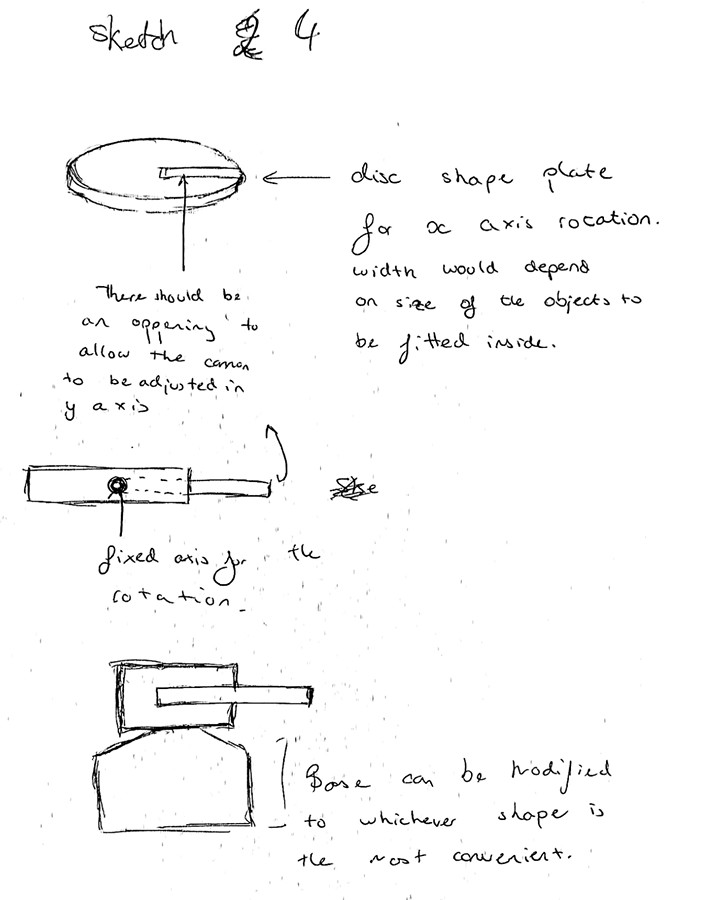 sketch 4
disc shape plate
for x axis rotation.
width would depend
on size of the objects to
be fitted inside.
There should be
an oppening to
allow the canon
to be adjusted in
y axis
fixed axis for the
rotation.
Base can be modified
to whichever shape is
the most convenient.